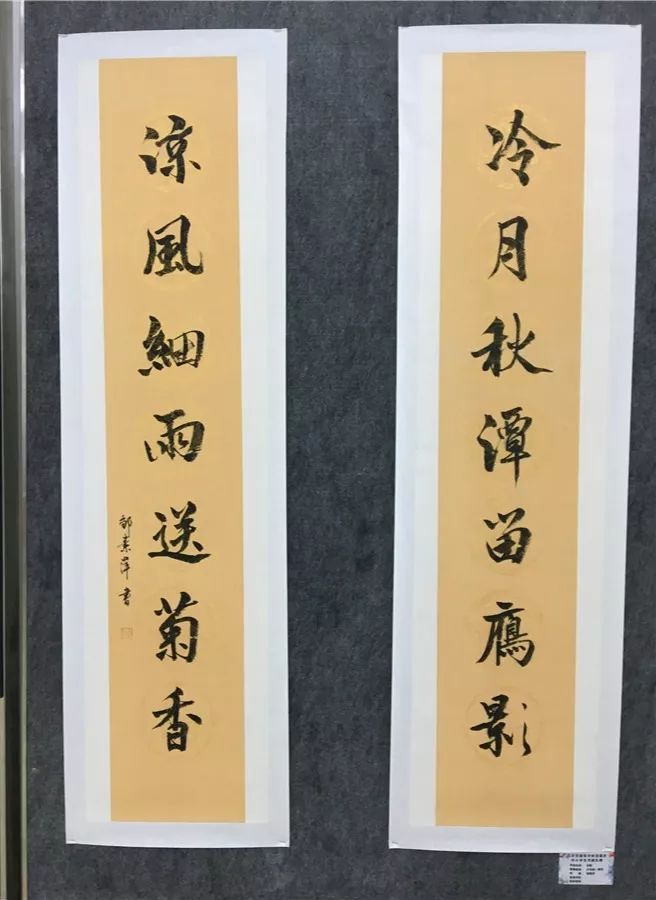 冷月秋潭留鴈影
涼風細雨送菊香
素萍書